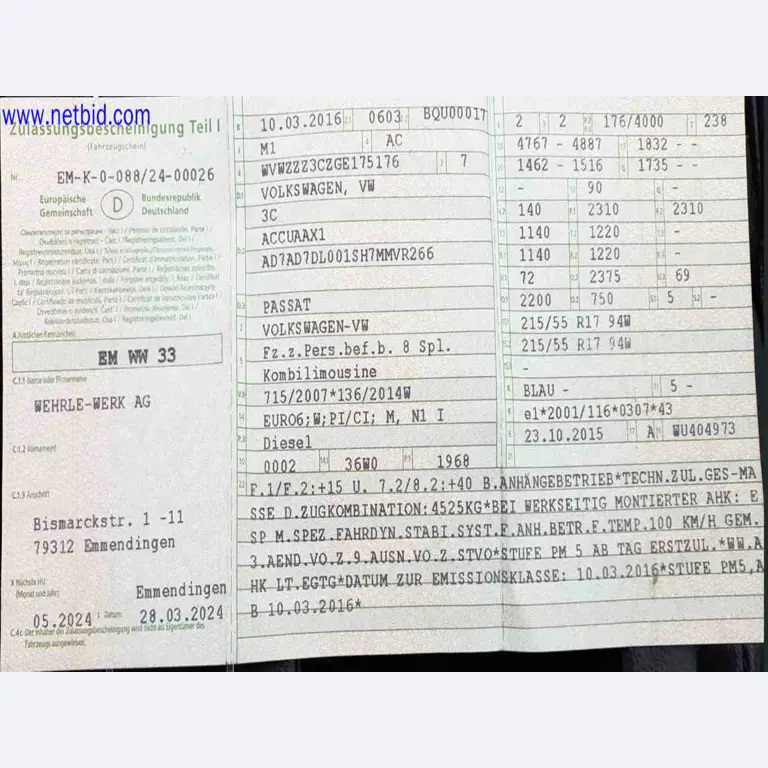 www.netbid.com
Zulassungsbescheinigung Teil I
(Fahrzeugschein)
Nr. EM-K-0-088/24-00026
Europäische Gemeinschaft D Bundesrepublik Deutschland
A Amtliches Kennzeichen
EM WW 33
C.1.1 Name oder Firmenname
WEHRLE-WERK AG
C.1.2 Vorname(n)
C.1.3 Anschrift
Bismarckstr. 1 -11
79312 Emmendingen
X Nächste HU
(Monat und Jahr)
Emmendingen
05.2024 Datum: 28.03.2024
C.4c Der Inhaber der Zulassungsbescheinigung wird nicht als Eigentümer des
Fahrzeugs ausgewiesen.
10.03.2016 0603 BQU00017
M1 AC
WVWZZZ3CZGE175176 7
VOLKSWAGEN, VW
3C
ACCUAAX1
AD7AD7DL001SH7MMVR266
PASSAT
VOLKSWAGEN-VW
Fz.z.Pers.bef.b. 8 Spl.
Kombilimousine
715/2007*136/2014W
EURO6;W;PI/CI; M, N1 I
Diesel
0002 36W0 1968
2 2 176/4000 238
4767 - 4887 1832 - -
1462 - 1516 1735 - -
- 90 -
140 2310 2310
1140 1220 -
1140 1220 -
72 2375 69
2200 750 5 -
215/55 R17 94W
215/55 R17 94W
-
BLAU - 5 -
e1*2001/116*0307*43
23.10.2015 A WU404973
22 F.1/F.2:+15 U. 7.2/8.2:+40 B.ANHÄNGEBETRIEB*TECHN.ZUL.GES-MA
SSE D.ZUGKOMBINATION:4525KG*BEI WERKSEITIG MONTIERTER AHK: E
SP M.SPEZ.FAHRDYN.STABI.SYST.F.ANH.BETR.F.TEMP.100 KM/H GEM.
3.AEND.VO.Z.9.AUSN.VO.Z.STVO*STUFE PM 5 AB TAG ERSTZUL.*WW.A
HK LT.EGTG*DATUM ZUR EMISSIONSKLASSE: 10.03.2016*STUFE PM5,A
B 10.03.2016*